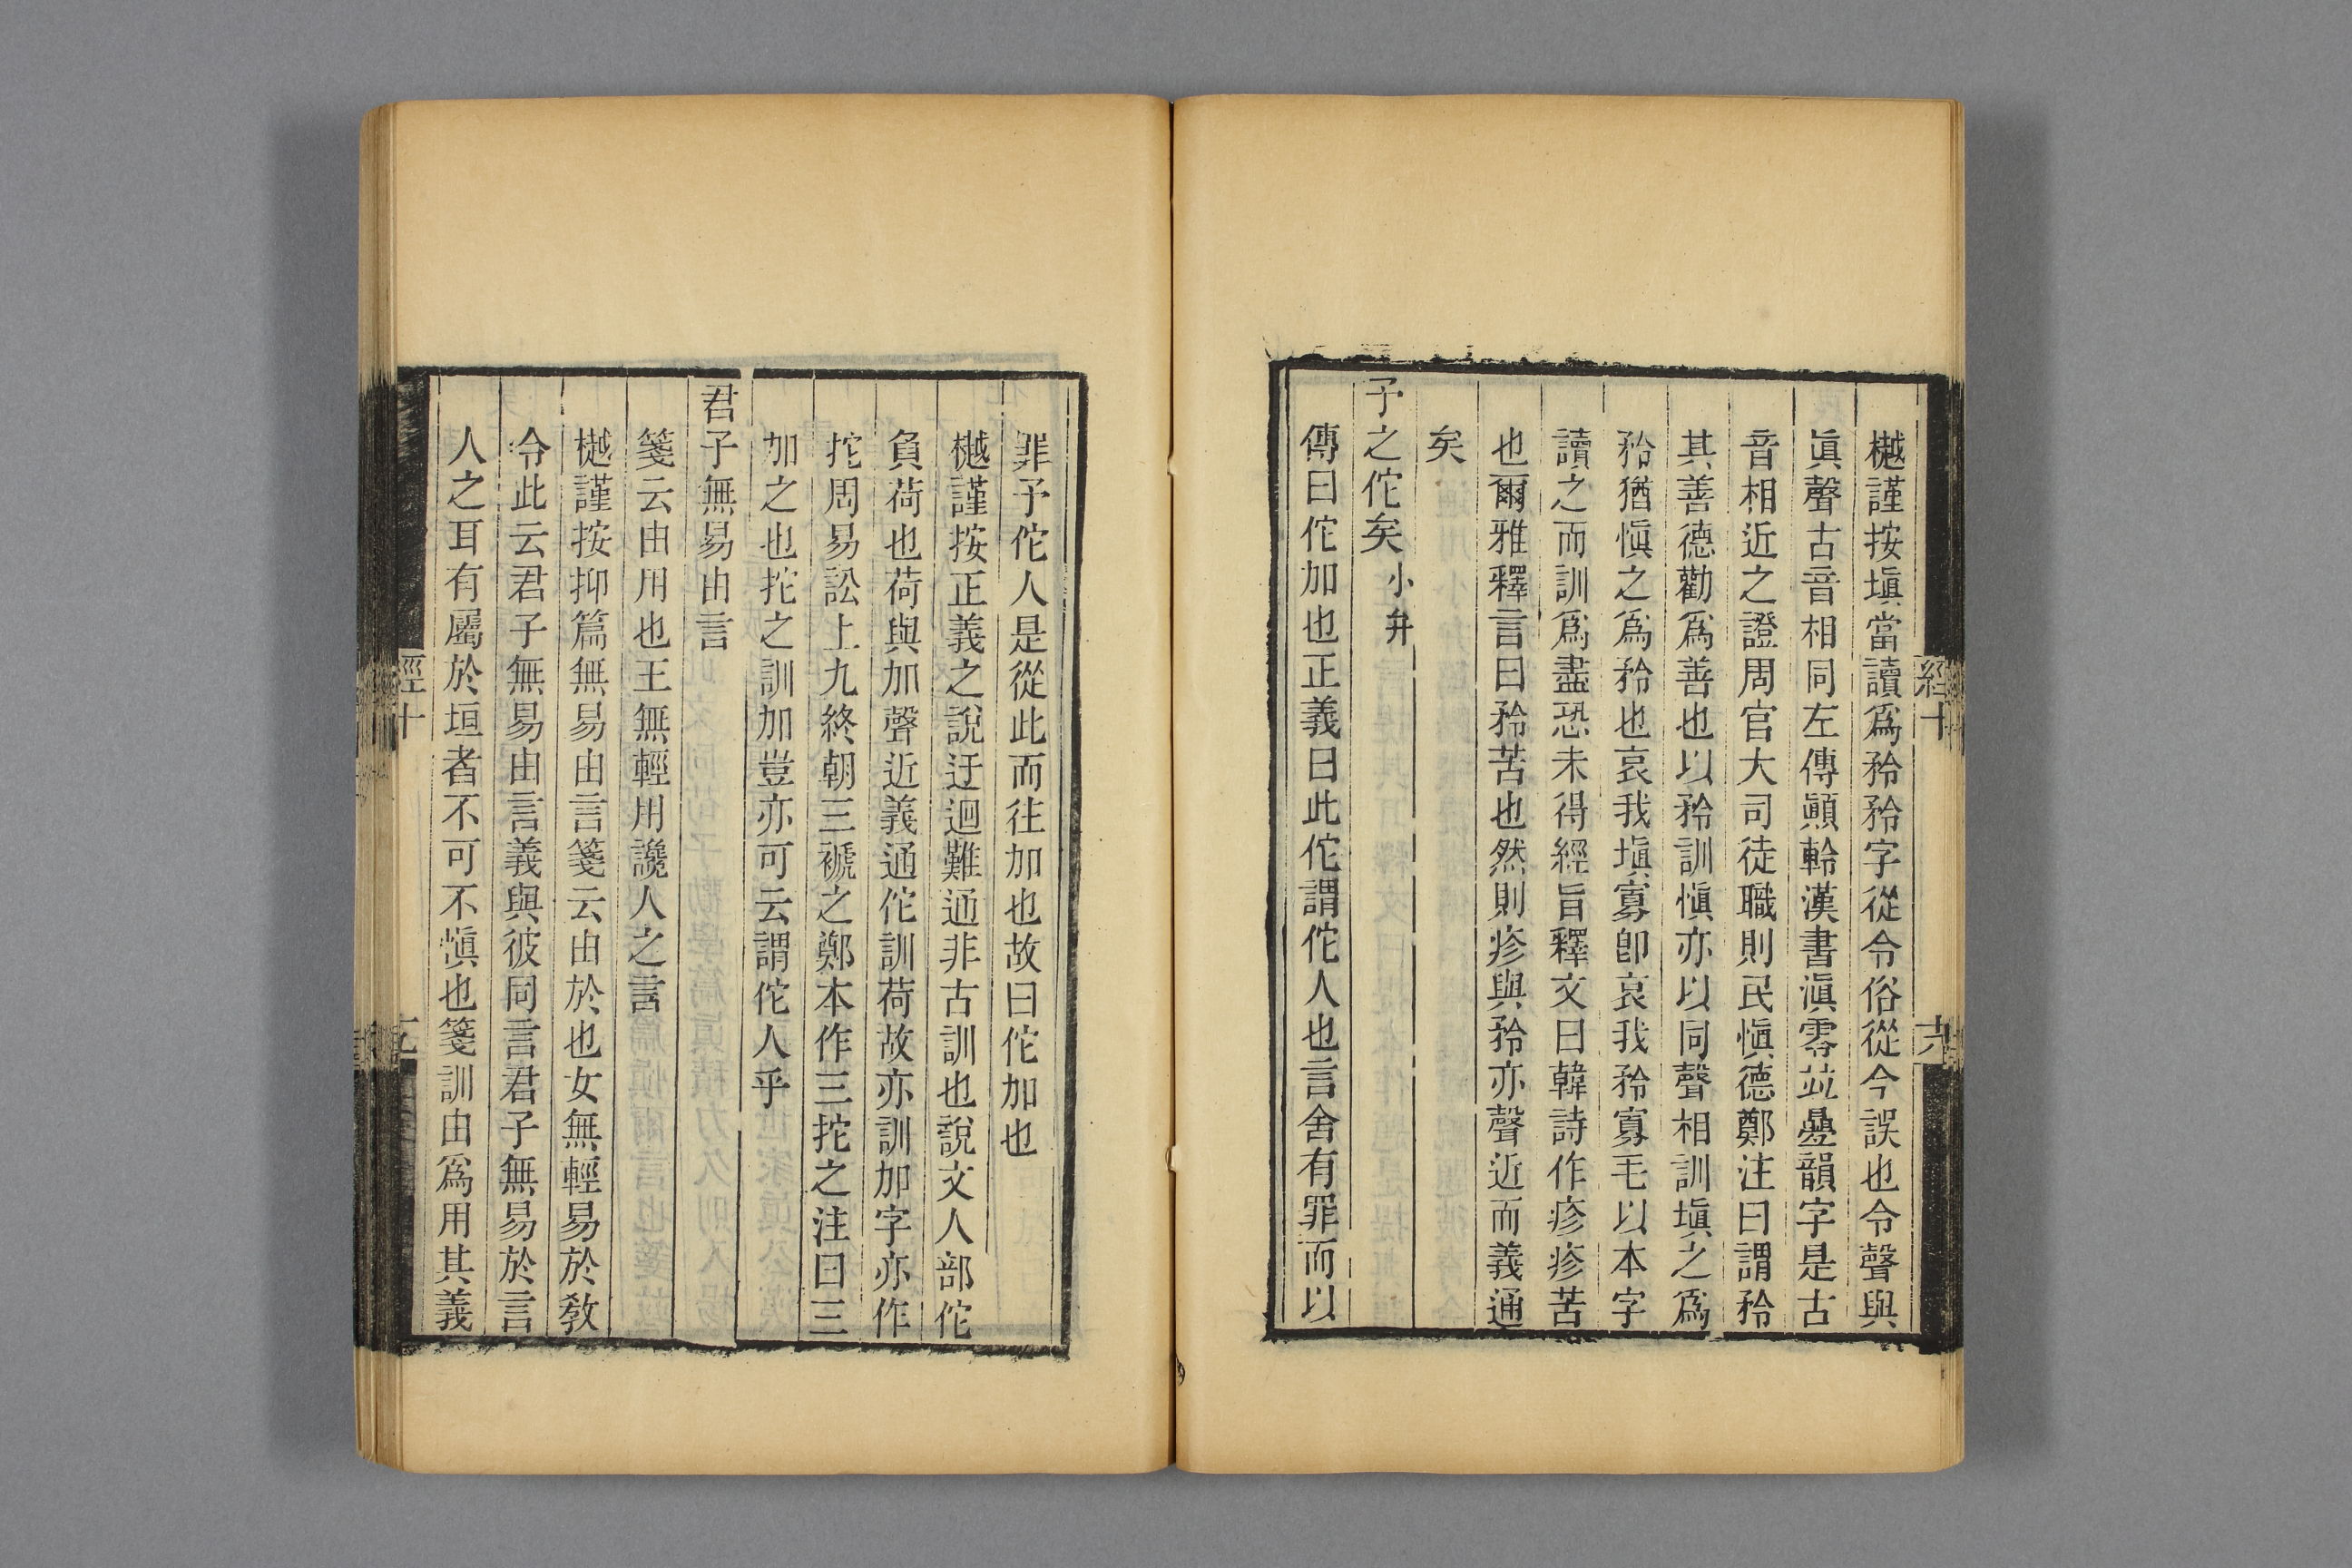 樾謹按塡當讀爲矜矜字從令俗從今誤也令聲與
眞聲古音相同左傳顚軨漢書滇零竝疊韻字是古
音相近之證周官大司徒職則民愼德鄭注曰謂矜
其善德勸爲善也以矜訓愼亦以同聲相訓塡之爲
矜猶愼之爲矜也哀我塡寡卽哀我矜寡毛以本字
讀之而訓爲盡恐未得經旨釋文曰韓詩作疹疹苦
也爾雅釋言曰矜苦也然則疹與矜亦聲近而義通
矣
予之佗矣小弁
傳曰佗加也正義曰此佗謂佗人也言舍有罪而以
罪予佗人是從此而往加也故曰佗加也
樾謹按正義之說迂迴難通非古訓也說文人部佗
負荷也荷與加聲近義通佗訓荷故亦訓加字亦作
拕周易訟上九終朝三褫之鄭本作三拕之注曰三
加之也拕之訓加豈亦可云謂佗人乎
君子無易由言
箋云由用也王無輕用讒人之言
樾謹按抑篇無易由言箋云由於也女無輕易於教
令此云君子無易由言義與彼同言君子無易於言
人之耳有屬於垣者不可不愼也箋訓由爲用其義
經十
經十